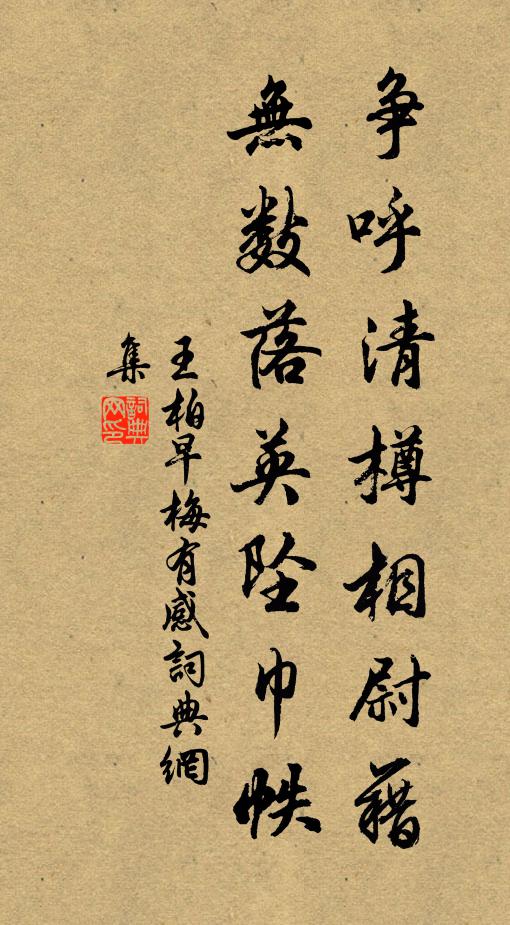 争呼清樽相尉藉
無数落英坠巾帙
王柏早梅有感詞典網
集
詞典网印